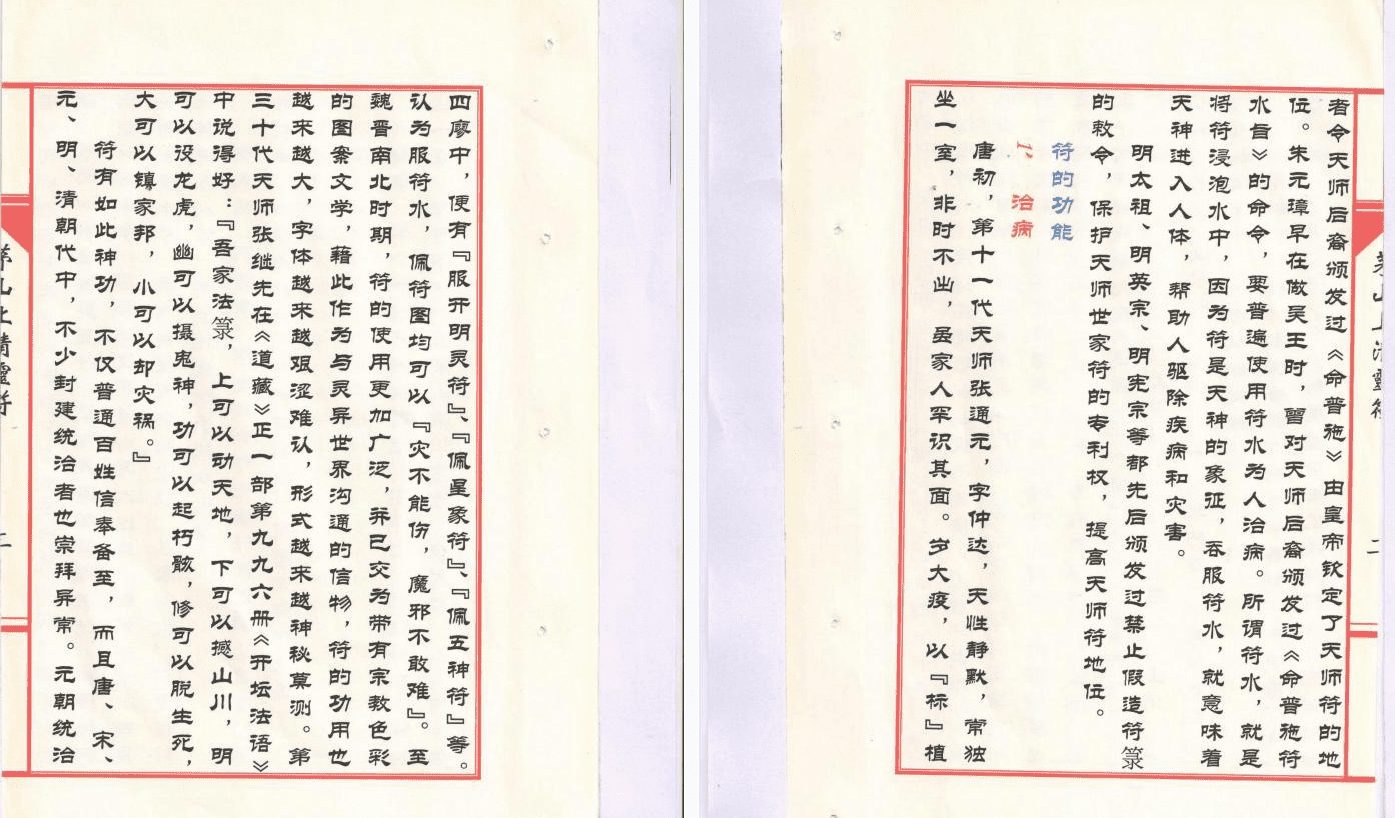 四廖中，便有『服开明灵符』、『佩星象符』、『佩五神符』等。
认为服符水，佩符图均可以『灾不能伤，魔邪不敢难』。至
魏晋南北时期，符的使用更加广泛，并已交为带有宗教色彩
的图案文学，藉此作为与灵异世界沟通的信物，符的功用也
越来越大，字体越来越艰涩难认，形式越来越神秘莫测。第
三十代天师张继先在《道藏》正一部第九九六册《开坛法语》
中说得好：『吾家法箓，上可以动天地，下可以撼山川，明
可以役龙虎，幽可以摄鬼神，功可以起朽骸，修可以脱生死，
大可以镇家邦，小可以却灾祸。』
符有如此神功，不仅普通百姓信奉备至，而且唐、宋、
元、明、清朝代中，不少封建统治者也崇拜异常。元朝统治
茅山上清靈符
二
者令天师后裔颁发过《命普施》由皇帝钦定了天师符的地
位。朱元璋早在做吴王时，曾对天师后裔颁发过《命普施符
水旨》的命令，要普遍使用符水为人治病。所谓符水，就是
将符浸泡水中，因为符是天神的象征，吞服符水，就意味着
天神进入人体，帮助人驱除疾病和灾害。
明太祖、明英宗、明宪宗等都先后颁发过禁止假造符箓
的敕令，保护天师世家符的专利权，提高天师符地位。
符的功能
一、治病
唐初，第十一代天师张通元，字仲达，天性静默，常独
坐一室，非时不出，虽家人罕识其面。岁大疫，以『标』植